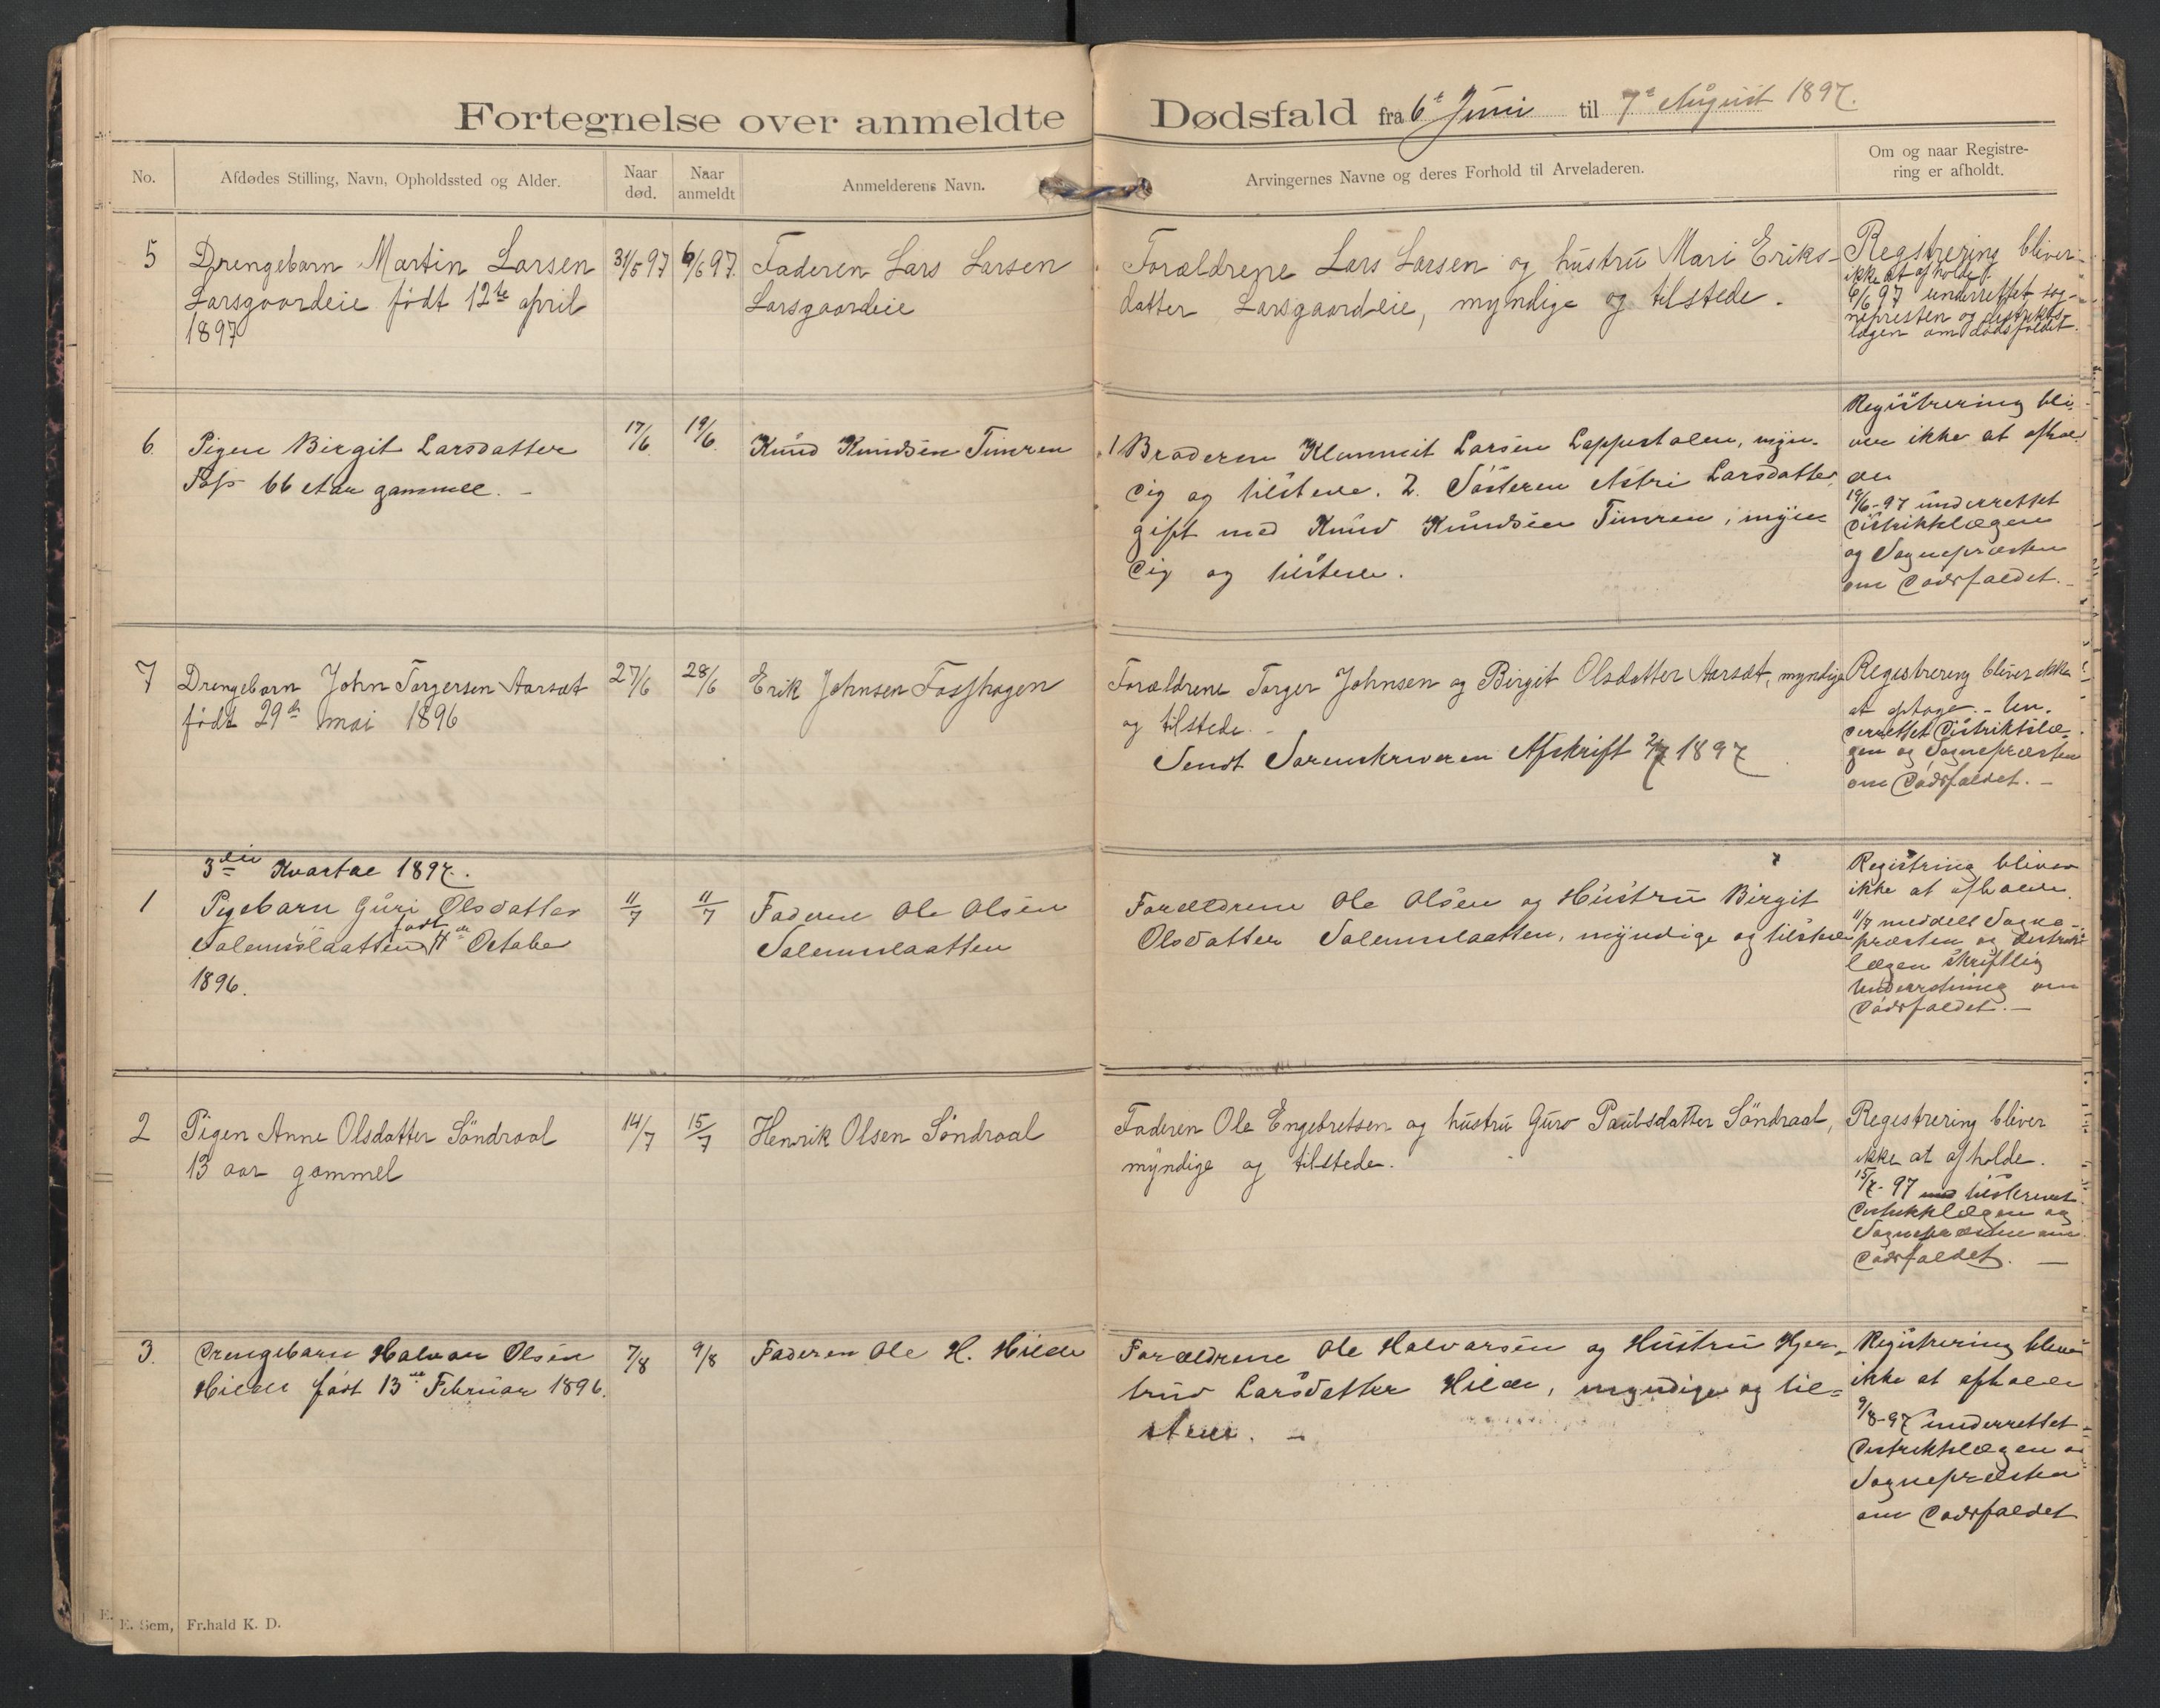 Fortegnelse over anmeldte Dødsfald fra 6te Juni til 7de August 1897.
No.
Afdødes Stilling, Navn, Opholdssted og Alder.
Naar
død.
Naar
anmeldt
Anmelderens Navn.
Arvingernes Navne og deres Forhold til Arveladeren.
Om og naar Registre-
ring er afholdt.
5
Drengebarn Martin Larsen
Larsgaardeie født 12te april
1897
31/5 97
6/6 97.
Faderen Lars Larsen
Larsgaardeie
Forældrene Lars Larsen og hustru Mari Eriks-
datter Larsgaardeie, myndige og tilstede.
Regstrering bliver
ikke at afholde.
6/6 97 underrettet sog-
nepresten og distrikts-
lægen om dødsfaldet.
6.
Pigen Birgit Larsdatter
Foss 66 Aar gammel. -
17/6.
19/6.
Knud Knudsen Timren
1 Broderen Klemmit Larsen Lappestolen, myn-
dig og tilstede. 2. Søsteren Astri Larsdatter,
gift med Knud Knudsen Timren, myn
dig og tilstede.
Registrering bli-
ver ikke at afhol-
de
19/6-97 underrettet
Distriktslægen
og Sognepræsten
om Dødsfaldet. -
7
Drengebarn John Torgersen Aarsæt
født 29de mai 1896
27/6
28/6
Erik Johnsen Fosshagen
Forældrene Torger Johnsen og Birgit Olsdatter Aarsæt, myndige
og tilstede. -
Sendt Sorenskriveren Afskrift 2/7 1897
Registrering bliver ikke
at optage. - Un-
derrettet Distriktslæ-
gen og Sognepræsten
om Dødsfaldet. -
3die Kvartal 1897.
1
Pigebarn Guri Olsdatter
født
Solemslaatten 4de October
1896.
11/7
11/7
Faderen Ole Olsen
Solemslaatten
Forældrene Ole Olsen og Hustru Birgit
Olsdatter Solemslaatten, myndige og tilstede
Registring bliver
ikke at afholde.
11/7 meddelt Sogne-
præsten og Distrikts-
lægen skriftlig
Underretning om
Dødsfaldet. -
2
Pigen Anne Olsdatter Söndraal
13 aar gammel
14/7
15/7
Henrik Olsen Söndraal
Faderen Ole Engebretsen og hustru Guro Paulsdatter Söndraal,
myndige og tilstede.
Registrering bliver
ikke at afholde.
15/7-97 tilskrevet
Distriktslægen og
Sognepræsten om
Dødsfaldet. -
3.
Drengebarn Halvor Olsen
Hilde født 13de Februar 1896.
7/8
9/8
Faderen Ole H. Hilde
Forældrene Ole Halvorsen og Hustru Hjer-
trud Larsdatter Hilde, myndige og til=
stede. -
Registrering bliver
ikke at afholde
9/8-97 underrettet
Distriktslægen og
Sognepræsten
om Dødsfaldet
E. Sem, Fr.hald K. D.